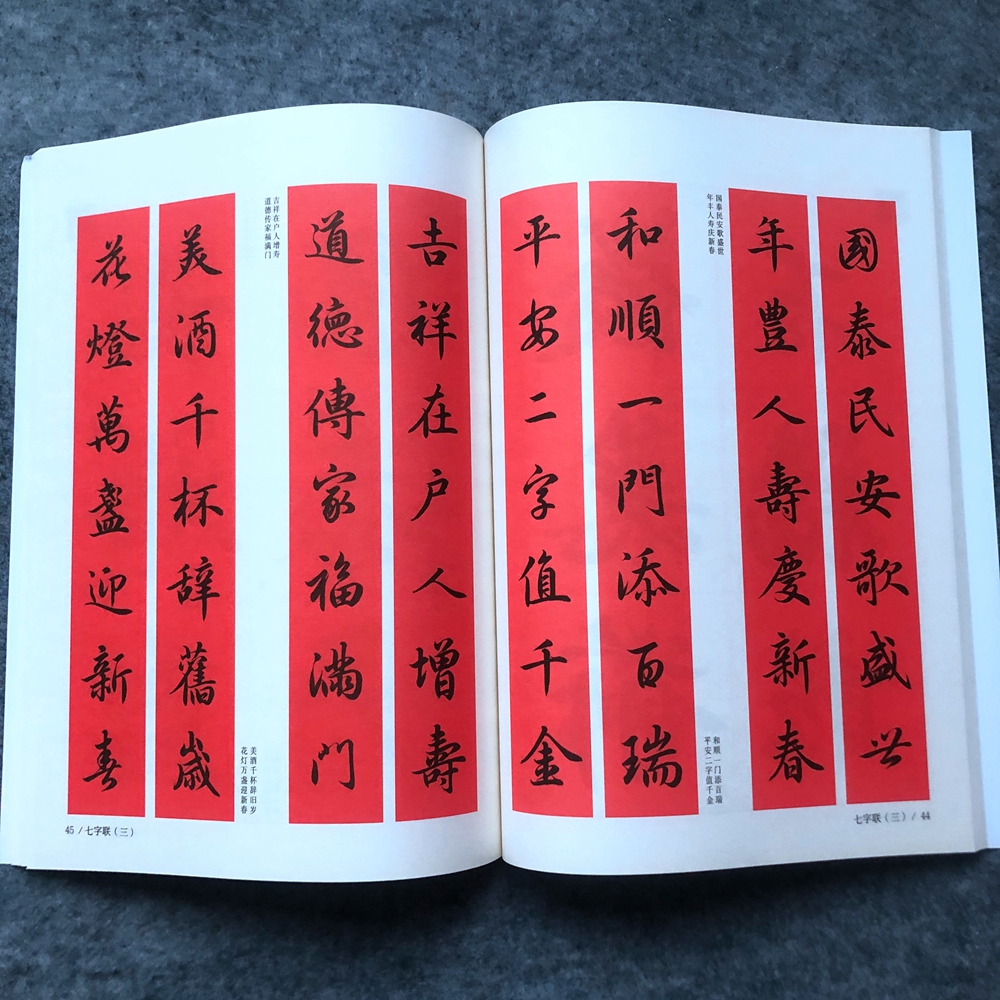 國泰民安歌盛世
年豐人壽慶新春
国泰民安歌盛世
年丰人寿庆新春
和順一門添百瑞
平安二字值千金
和顺一门添百瑞
平安二字值千金
七字联（三）/ 44
吉祥在户人增壽
道德傳家福滿門
吉祥在户人增寿
道德传家福满门
美酒千杯辞舊歲
花燈萬盞迎新春
美酒千杯辞旧岁
花灯万盏迎新春
45 / 七字联（三）